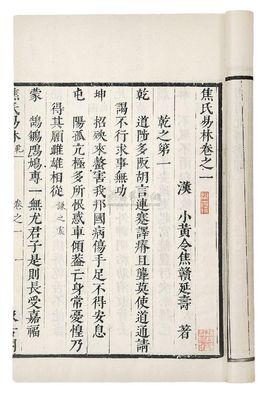 焦氏易林卷之一
漢 小黃令焦贛延壽 著
乾之第一
乾 道陟多阪胡言連蹇譯瘖且聾莫使道通請
謁不行求事無功
坤 招殃來螫害我邦國病傷手足不得安息
屯 陽孤亢極多所恨惑車傾蓋亡身常憂惶乃
得其願雌雄相從 謙之蒙
蒙 鵠鵴鳲鳩專一無尤君子是則長受嘉福
焦氏易林 卷之一